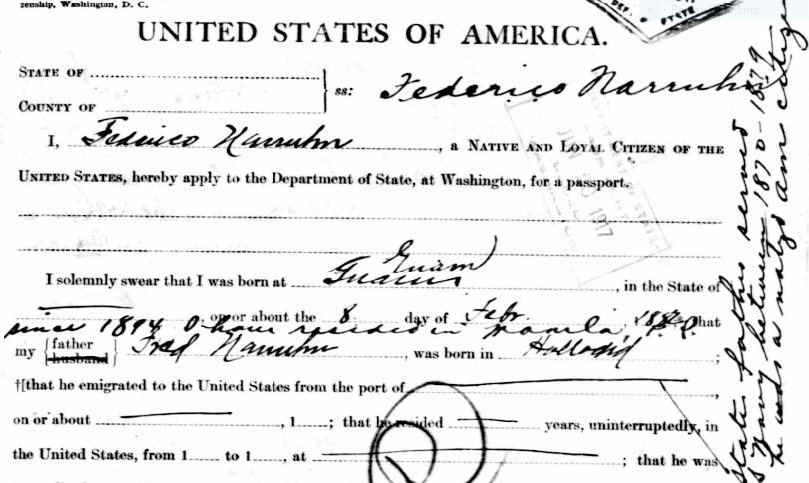 zenship, Washington, D. C.
UNITED STATES OF AMERICA.
STATE OF
COUNTY OF
ss: Federico Narruhn
I, Federico Narruhn, a NATIVE AND LOYAL CITIZEN OF THE
UNITED STATES, hereby apply to the Department of State, at Washington, for a passport.
Guam
I solemnly swear that I was born at Guam, in the State of
, on or about the 8 day of Febr. , that
since 1894 I have resided in Manila, P. I.
my {father husband} Fred Narruhn, was born in
†[that he emigrated to the United States from the port of
on or about , 1 ; that he resided years, uninterruptedly, in
the United States, from 1 to 1 , at ; that he was
states father served
Navy between 1870-1879
he was a natzd am citizen
DEP.
STATE
1917